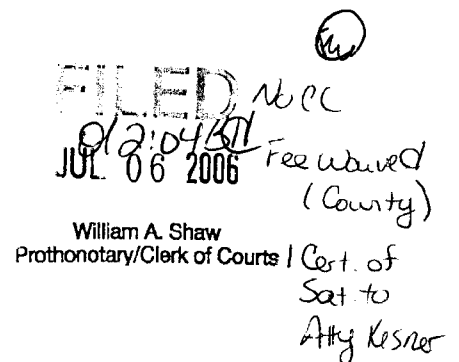 FILED No CC
012:04BJ Fee waived
JUL 06 2006 (County)
William A. Shaw
Prothonotary/Clerk of Courts 1 Cert. of
Sat. to
Atty Kesner